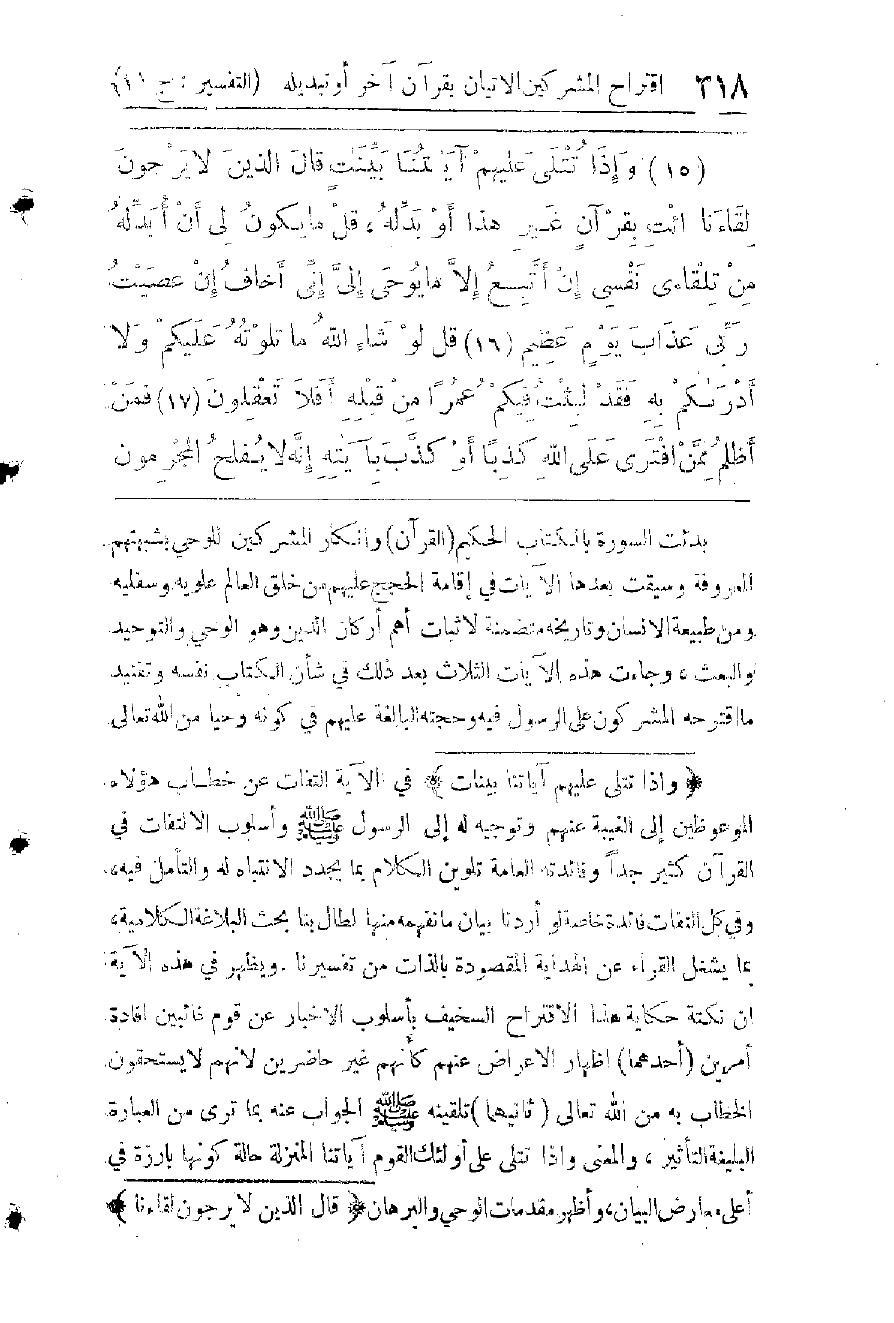 ٣١٨ اقتراح المشركين الاتيان بقرآن آخر أو تبديله (التفسير : ج ١١)
(١٥) وَإِذَا تُتْلَى عَليهمْ آيَاتُنَا بَيِّنَاتٍ قالَ الذينَ لا يَرْجونَ
لِقَاءَنا ائْتِ بِقرْآنٍ غَيرِ هذا أَوْ بَدِّلهُ ، قلْ ما يكونُ لِى أَنْ أُبَدِّلهُ
مِنْ تِلْقاءى نَفْسِى إِنْ أَتَّبِعُ إِلاَّ ما يُوحَى إِلىَّ إِنِّى أَخافُ إِنْ عصَيْتُ
رَبِّى عَذَابَ يَوْمٍ عَظِيمٍ (١٦) قل لوْ شَاءِ اللهُ ما تلوْتُهُ عَلَيكمْ وَلا
أَدْرَىٰكمْ بِهِ فَقَدْ لبِثْتُ فِيكمْ عُمرًا مِنْ قبْلِهِ أَفلاَ تَعْقِلونَ (١٧) فمَنْ
أَظلمُ مِمَّنْ افْتَرى عَلَى اللهِ كذِبًا أَوْ كذَّبَ بِآيَٰتِهِ إِنَّهُ لا يُفلحُ المجْرِمون
بدئت السورة بالكتاب الحكيم (القرآن) وانكار المشركين للوحي بشبهتهم
المعروفة وسيقت بعدها الآيات في إقامة الحجج عليهم من خلق العالم علويه وسفليه
ومن طبيعة الانسان وتاريخه متضمنة لاثبات أهم أركان الدين وهو الوحي والتوحيد
والبعث ، وجاءت هذه الآيات الثلاث بعد ذلك في شأن الكتاب نفسه وتفنيد
ما اقترحه المشركون على الرسول فيه وحجته البالغة عليهم في كونه وحيا من الله تعالى
﴿ واذا تتلى عليهم آياتنا بينات ﴾ في الآية التفات عن خطاب هؤلاء
الموعوظين إلى الغيبة عنهم وتوجيه له إلى الرسول ﷺ وأسلوب الالتفات في
القرآن كثير جداً وفائدته العامة تلوين الكلام بما يجدد الانتباه له والتأمل فيه ،
وفي كل التفات فائدة خاصة لو أردنا بيان ما نفهمه منها لطال بنا بحث البلاغة الكلامية ،
بما يشغل القراء عن الهداية المقصودة بالذات من تفسيرنا . ويظهر في هذه الآية
ان نكتة حكاية هذا الاقتراح السخيف بأسلوب الاخبار عن قوم غائبين افادة
أمرين (أحدهما) اظهار الاعراض عنهم كأنهم غير حاضرين لانهم لا يستحقون
الخطاب به من الله تعالى (ثانيهما) تلقينه ﷺ الجواب عنه بما ترى من العبارة
البليغة التأثير ، والمعنى واذا تتلى على أولئك القوم آياتنا المنزلة حالة كونها بارزة في
أعلى معارض البيان ، وأظهر مقدمات الوحي والبرهان ﴿ قال الذين لا يرجون لقاءنا ﴾